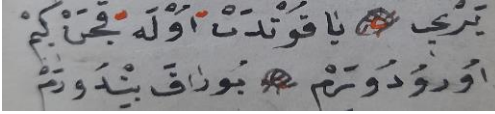 يَرِي يَا قُوتْدَنْ اوُلَه قَچَنْ كِمْ
اوُروُدُورَمْ بُورَاقَ بِنْدُورَمْ